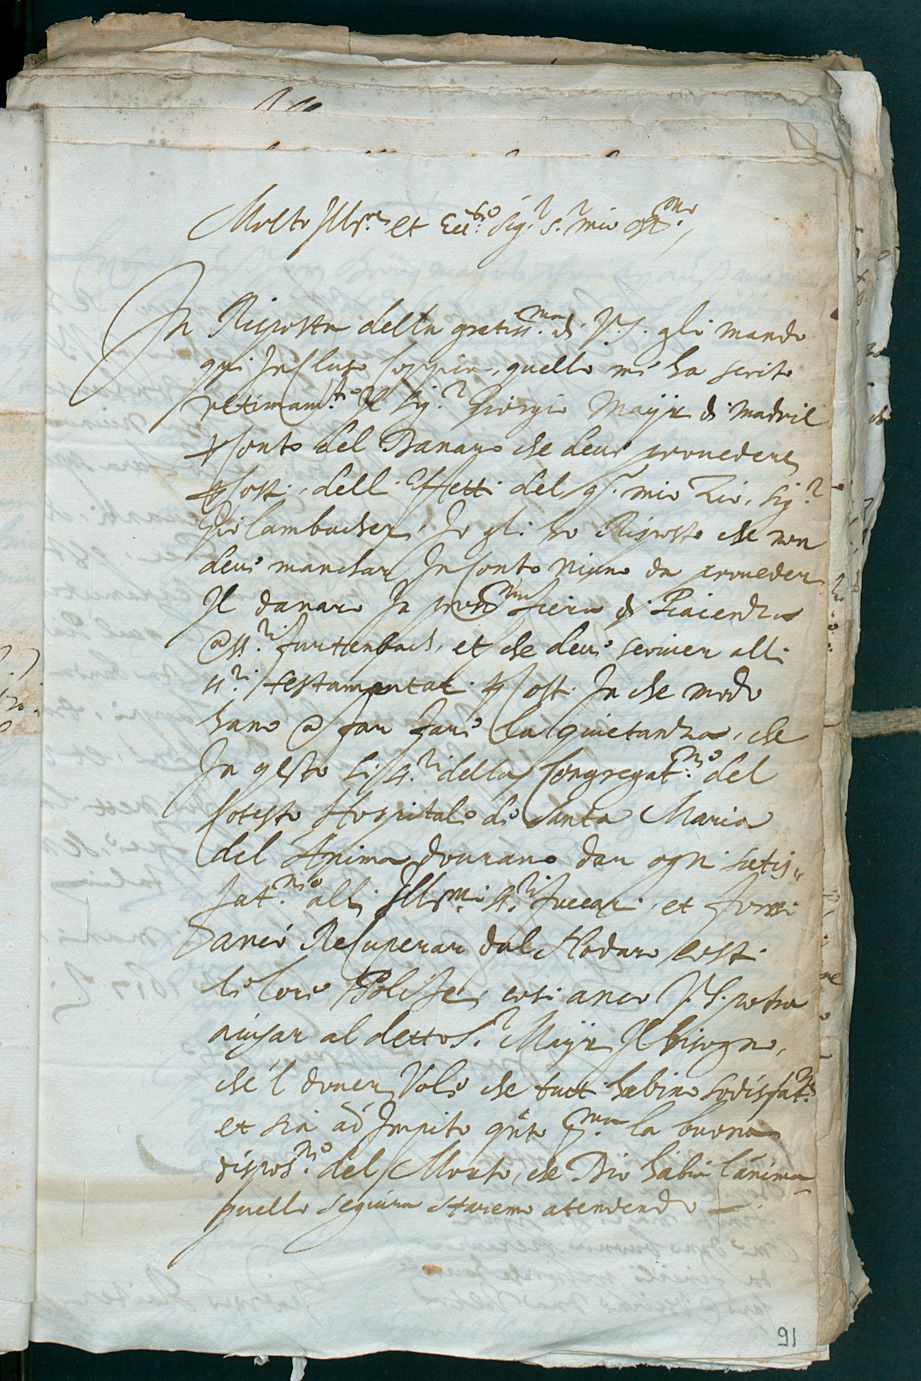 Molto Ill.re et Ecc.mo Sig.r S.r mio oss.mo
In Risposta della gratiss.ma di V.S. gli mando
qui Incluso Coppia, quello mi ha scrito
ultimam.te Il Sig.r Giorgio Mayr di Madril
conto del Danaro che deve provedere
costi, delli effetti del q. mio Zio, sig.r
Gio lambacher, Io gli ho Risposto che non
devi manchar In Conto niuno da proveder
Il danaro In pross.ma fiera di Piacenza
a ss.ri furttenbach, et che devi scriver alli
ss.ri testamentari costi In che modo
hano a far fare la quietanza, che
In questo li ss.ri della Congregat.ne del
Cotesto Hospitale di Santa Maria
del Anima dovrano dar ogni satis-
fat.ne alli Ill.mi ss.ri fuccari, et
anco Recuperar dal costi
le loro Polisse, cosi anco V.S. potra
avisar al detto S.r Mayr Il bisogno,
ch'l dover vole che tutti habino sodisfat.ne
et sia ad Impito q.to p.ma la buona
dispos.ne del Morto, che Dio habia l'anima
quello seguira staremo atendendo
91